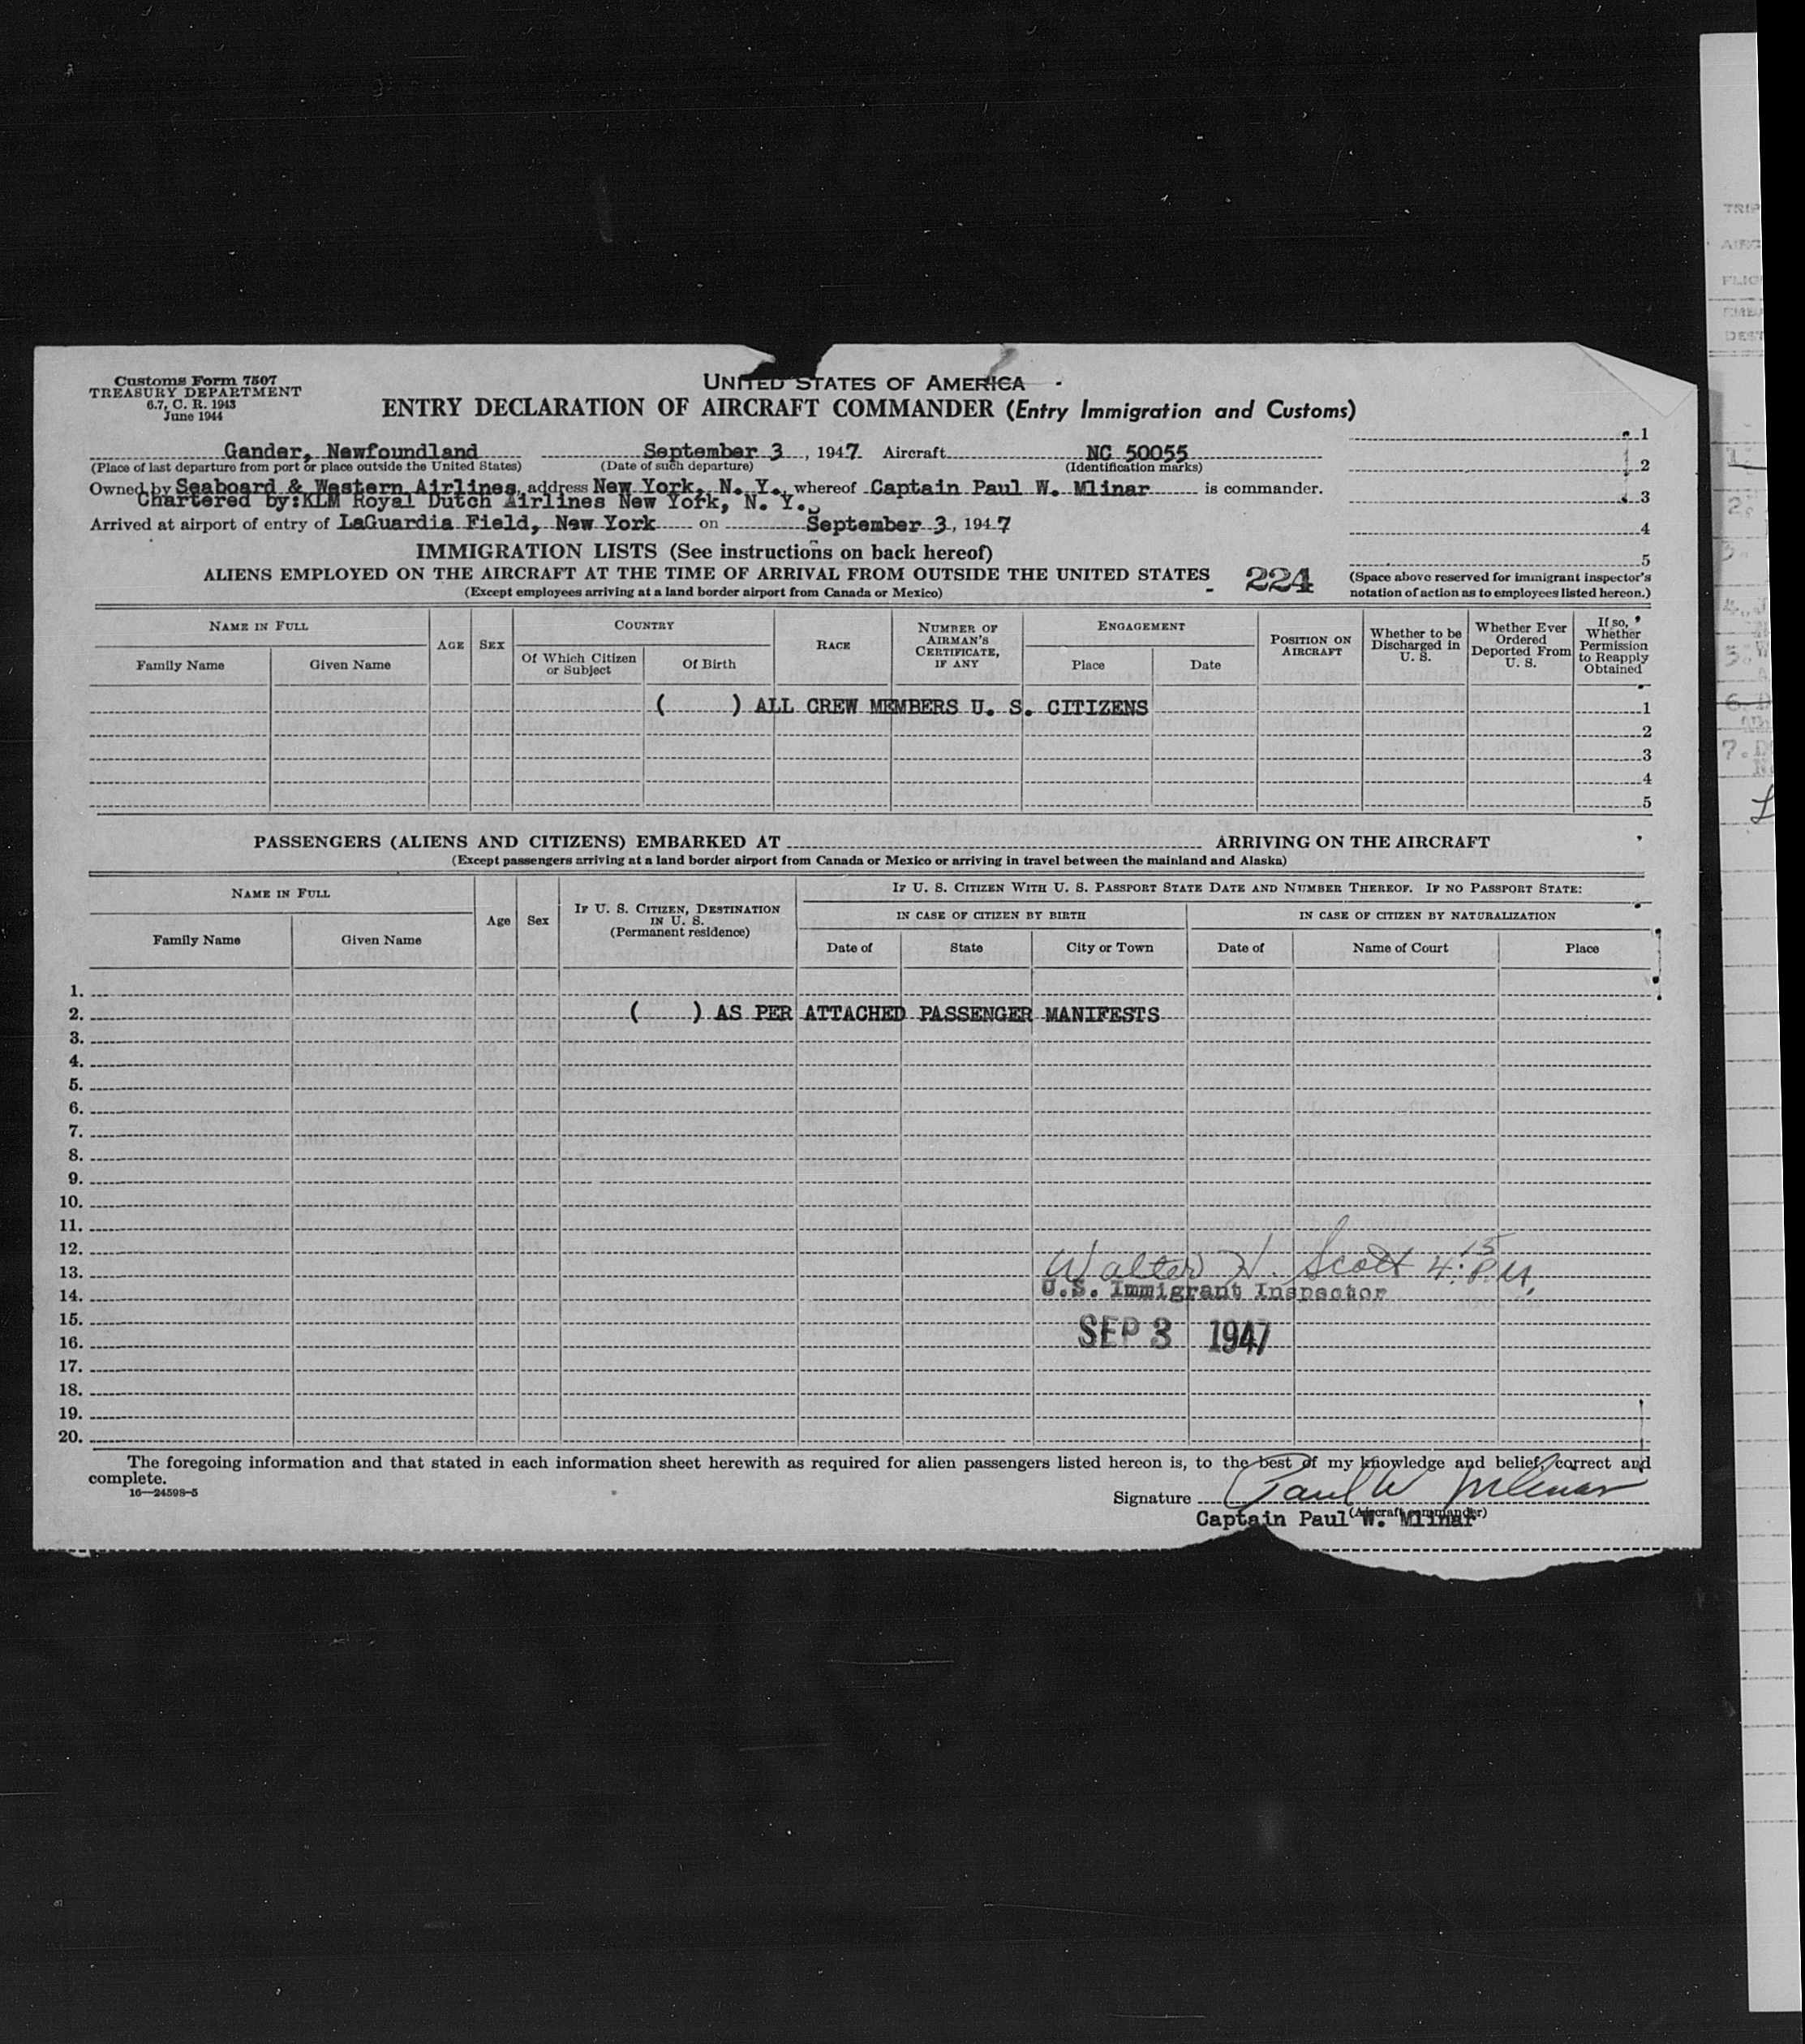 Customs Form 7507
TREASURY DEPARTMENT
6.7, C. R. 1943
June 1944
UNITED STATES OF AMERICA
ENTRY DECLARATION OF AIRCRAFT COMMANDER (Entry Immigration and Customs)
Gander, Newfoundland September 3, 1947 Aircraft NC 50055
(Place of last departure from port or place outside the United States) (Date of such departure) (Identification marks)
Owned by Seaboard & Western Airlines, address New York, N. Y., whereof Captain Paul W. Mlinar is commander.
Chartered by:KLM Royal Dutch Airlines New York, N. Y.
Arrived at airport of entry of LaGuardia Field, New York on September 3, 1947
1
2
3
4
5
IMMIGRATION LISTS (See instructions on back hereof)
ALIENS EMPLOYED ON THE AIRCRAFT AT THE TIME OF ARRIVAL FROM OUTSIDE THE UNITED STATES - 224
(Except employees arriving at a land border airport from Canada or Mexico)
(Space above reserved for immigrant inspector's
notation of action as to employees listed hereon.)
NAME IN FULL
Family Name Given Name
AGE SEX
COUNTRY
Of Which Citizen
or Subject
Of Birth
RACE
NUMBER OF
AIRMAN'S
CERTIFICATE,
IF ANY
ENGAGEMENT
Place Date
POSITION ON
AIRCRAFT
Whether to be
Discharged in
U. S.
Whether Ever
Ordered
Deported From
U. S.
If so,
Whether
Permission
to Reapply
Obtained
( ) ALL CREW MEMBERS U. S. CITIZENS 1
2
3
4
5
PASSENGERS (ALIENS AND CITIZENS) EMBARKED AT ARRIVING ON THE AIRCRAFT
(Except passengers arriving at a land border airport from Canada or Mexico or arriving in travel between the mainland and Alaska)
NAME IN FULL
Family Name Given Name
Age Sex
IF U. S. CITIZEN, DESTINATION
IN U. S.
(Permanent residence)
IF U. S. CITIZEN WITH U. S. PASSPORT STATE DATE AND NUMBER THEREOF. IF NO PASSPORT STATE:
IN CASE OF CITIZEN BY BIRTH IN CASE OF CITIZEN BY NATURALIZATION
Date of State City or Town Date of Name of Court Place
1.
2. ( ) AS PER ATTACHED PASSENGER MANIFESTS
3.
4.
5.
6.
7.
8.
9.
10.
11.
12.
13. Walter H. Scott 4:15 P.M.
14. U.S. Immigrant Inspector
15.
16. SEP 3 1947
17.
18.
19.
20.
The foregoing information and that stated in each information sheet herewith as required for alien passengers listed hereon is, to the best of my knowledge and belief, correct and
complete.
16—24598-5
Signature Paul W Mlinar
(Aircraft commander)
Captain Paul W. Mlinar